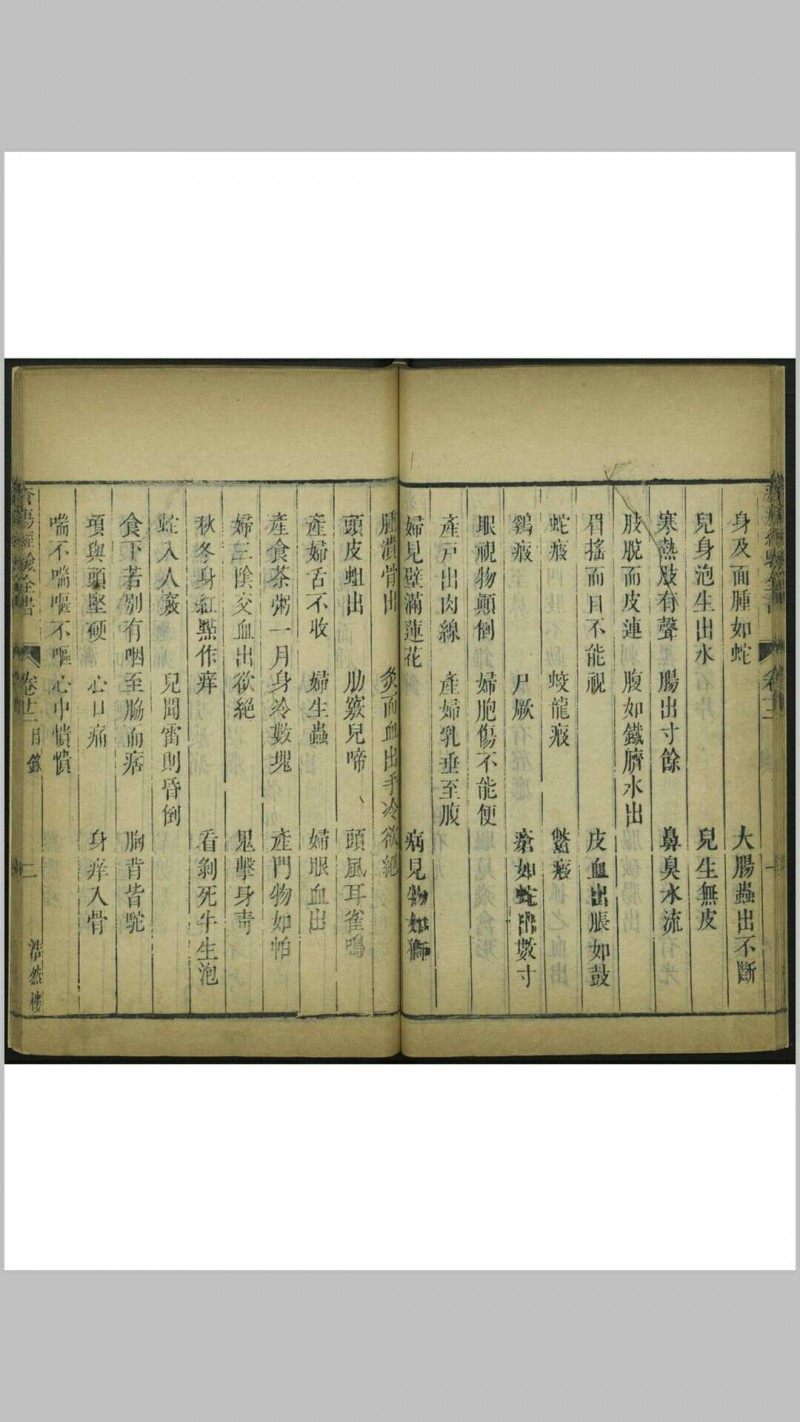 身及面腫如蛇　大腸蟲出不斷
兒身泡生出水　兒生無皮
寒熱肢有聲　腸出寸餘　鼻臭水流
肢脫而皮連　腹如鐵臍水出
眉搖而目不能視　皮血出脹如鼓
蛇瘕　蛟龍瘕　鱉瘕
鷄瘕　尸厥　瘡如蛇出數寸
眼視物顛倒　婦胞傷不能便
產戸出肉線　產婦乳垂至腹
婦見壁滿蓮花　病見物如獅
腫潰骨出　灸而血出手冷欲絕
頭皮蛆出　肋竅兒啼　頭風耳雀鳴
產婦舌不收　婦生蟲　婦眼血出
產食茶粥一月身冷數塊　產門物如帕
婦三陰交血出欲絕　鬼擊身靑
秋冬身紅點作痒　看剝死牛生泡
蛇入人竅　兒聞雷則昏倒
食下若別有咽至脇而痞　胸背皆駝
項與頭堅硬　心口痛　身痒入骨
喘不喘嘔不嘔心中憒憒
奇瘍經驗全書　卷十二目錄　二　浩然樓